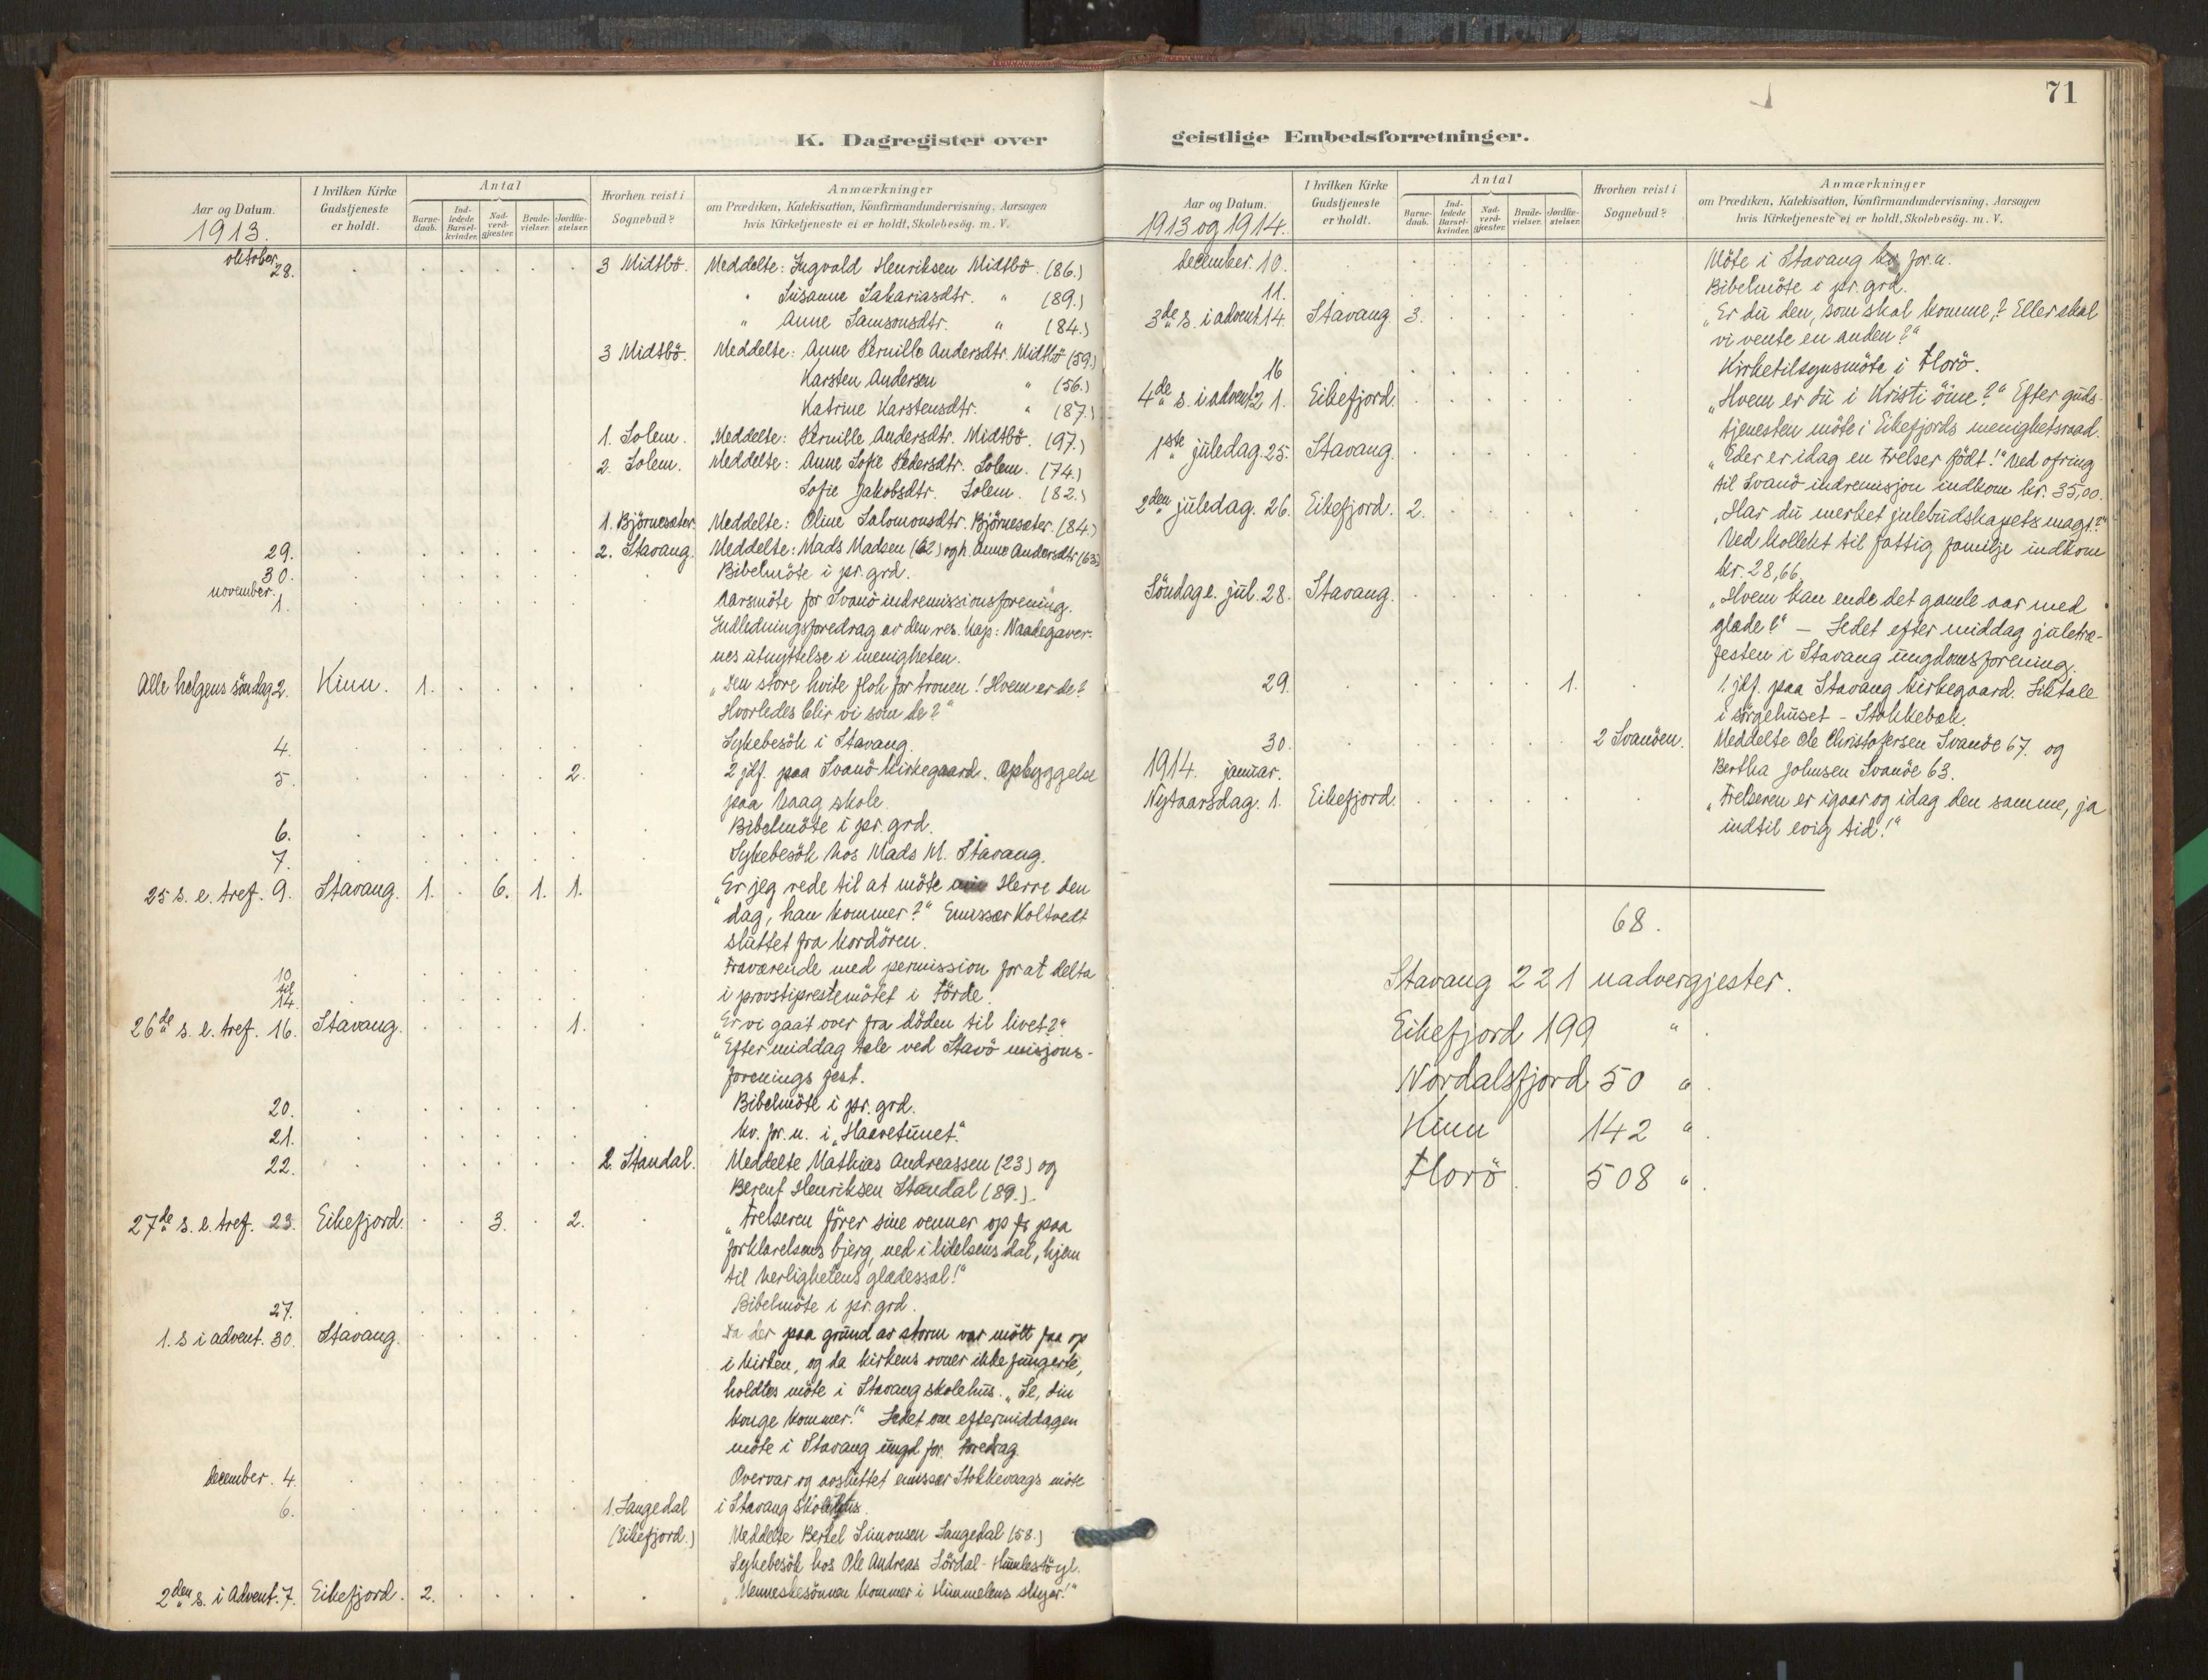 71
K. Dagregister over
Aar og Datum.
1913.
I hvilken Kirke
Gudstjeneste
er holdt.
Antal
Barne-
daab.
Ind-
ledede
Barsel-
kvinder.
Nad-
verd-
gjæster.
Brude-
vielser.
Jordfæ-
stelser.
Hvorhen reist i
Sognebud?
Anmærkninger
om Prædiken, Katekisation, Konfirmandundervisning, Aarsagen
hvis Kirketjeneste ei er holdt, Skolebesög. m. V.
oktober
28. 3 Midtbö. Meddelte: Ingvald Henriksen Midtbö. (86.)
" Susanne Sakariasdtr. " (89.)
" Anne Samsonsdtr. " (84.)
3 Midtbö. Meddelte: Anne Pernille Andersdtr. Midtbö (59.)
Karsten Andersen " (56.)
Katrine Karstensdtr. " (87.)
1. Solem. Meddelte: Pernille Andersdtr. Midtbö. (97.)
2. Solem. Meddelte: Anne Sofie Pedersdtr. Solem. (74.)
Sofie Jakobsdtr. Solem. (82.)
1. Björnesæter. Meddelte: Oline Salomonsdtr. Björnesæter. (84.)
29. 2. Stavang. Meddelte: Mads Madsen (62) og h. Anne Andersdtr (63)
30. Bibelmöte i pr. grd.
november.
1. Aarsmöte for Svanö indremissionsforening.
Indledningsforedrag av den res. kap: Naadegaver-
nes utnyttelse i menigheten.
Alle helgens söndag 2. Kinn. 1. „Den store hvite flok for tronen! Hvem er de?
Hvorledes blir vi som de?"
4. Sykebesök i Stavang.
5. 2. 2 jdf. paa Svanö kirkegaard. Opbyggelse
paa Vaag skole.
6. Bibelmöte i pr. grd.
7. Sykebesök hos Mads M. Stavang.
25 s. e. tref. 9. Stavang. 1. 6. 1. 1. „Er jeg rede til at möte min Herre den
dag, han kommer?" Emissær Koltvedt
sluttet fra kordören.
10 til 14. Fraværende med permission for at delta
i provstiprestemötet i Förde.
26de s. e. tref. 16. Stavang. 1. „Er vi gaat over fra döden til livet?"
Eftermiddag tale ved Stavö misjons-
forenings fest.
20. Bibelmöte i pr. grd.
21. Kv. for. u. i „Haavetunet."
22. 2. Standal. Meddelte Mathias Andreassen (23) og
Berent Henriksen Standal (89.)
27de s. e. tref. 23. Eikefjord. 3. 2. „Frelseren förer sine venner op fr paa
forklarelsens bjerg, ned i lidelsens dal, hjem
til herlighetens glædessal!"
27. Bibelmöte i pr. grd.
1. s i advent. 30. Stavang. Da der paa grund av storm var mött faa op
i kirken, og da kirkens ovner ikke fungerte,
holdtes möte i Stavang skolehus. „Se, din
konge kommer!" Ledet om eftermiddagen
möte i Stavang ungd for. Foredrag.
december. 4. Overvar og avsluttet emissær Stokkevaags möte
i Stavang skolehus.
6. 1. Langedal
(Eikefjord.) Meddelte Bertel Simonsen Langedal (58.)
Sykebesök hos Ole Andreas Sördal-
2den s. i Advent. 7. Eikefjord. 2. „Menneskesönnen kommer i Himmelens skyer!"
geistlige Embedsforretninger.
Aar og Datum.
1913 og 1914.
I hvilken Kirke
Gudstjeneste
er holdt.
Antal
Barne-
daab.
Ind-
ledede
Barsel-
kvinder.
Nad-
verd-
gjæster.
Brude-
vielser.
Jordfæ-
stelser.
Hvorhen reist i
Sognebud?
Anmærkninger
om Prædiken, Katekisation, Konfirmandundervisning, Aarsagen
hvis Kirketjeneste ei er holdt, Skolebesög. m. V.
december. 10. Möte i Stavang kv. for. u.
11. Bibelmöte i pr. grd.
3de s. i advent 14. Stavang. 3. „Er du den, som skal komme,? Eller skal
vi vente en anden?"
16 Kirketilsynsmöte i Florö.
4de s. i advent 21. Eikefjord. „Hvem er du i Kristi öine?" Efter guds-
tjenesten möte i Eikefjords menighetsraad.
1ste juledag. 25. Stavang. „Eder er idag en Frelser födt!" Ved ofring
til Svanö indremisjon indkom kr. 35,00.
2den juledag. 26. Eikefjord. 2. „Har du merket julebudskapets magt?"
Ved kollekt til fattig familje indkom
kr. 28,66.
Söndag e. jul. 28. Stavang. „Hvem kan ende det gamle aar med
glæde?" — Ledet efter middag juletræ-
festen i Stavang ungdomsforening.
29. 1. 1 jdf. paa Stavang kirkegaard. Liktale
i sörgehuset - Stokkebæk.
30. 2 Svanöen. Meddelte Ole Christofersen Svanöe 67. og
Bertha Johnsen Svanöe 63.
1914. januar.
Nytaarsdag. 1. Eikefjord. „Frelseren er igaar og idag den samme, ja
indtil evig tid!"
68.
Stavang 221 nadvergjester.
Eikefjord 199 "
Nordalsfjord 50 "
Kinn 142 "
Florö. 508 "